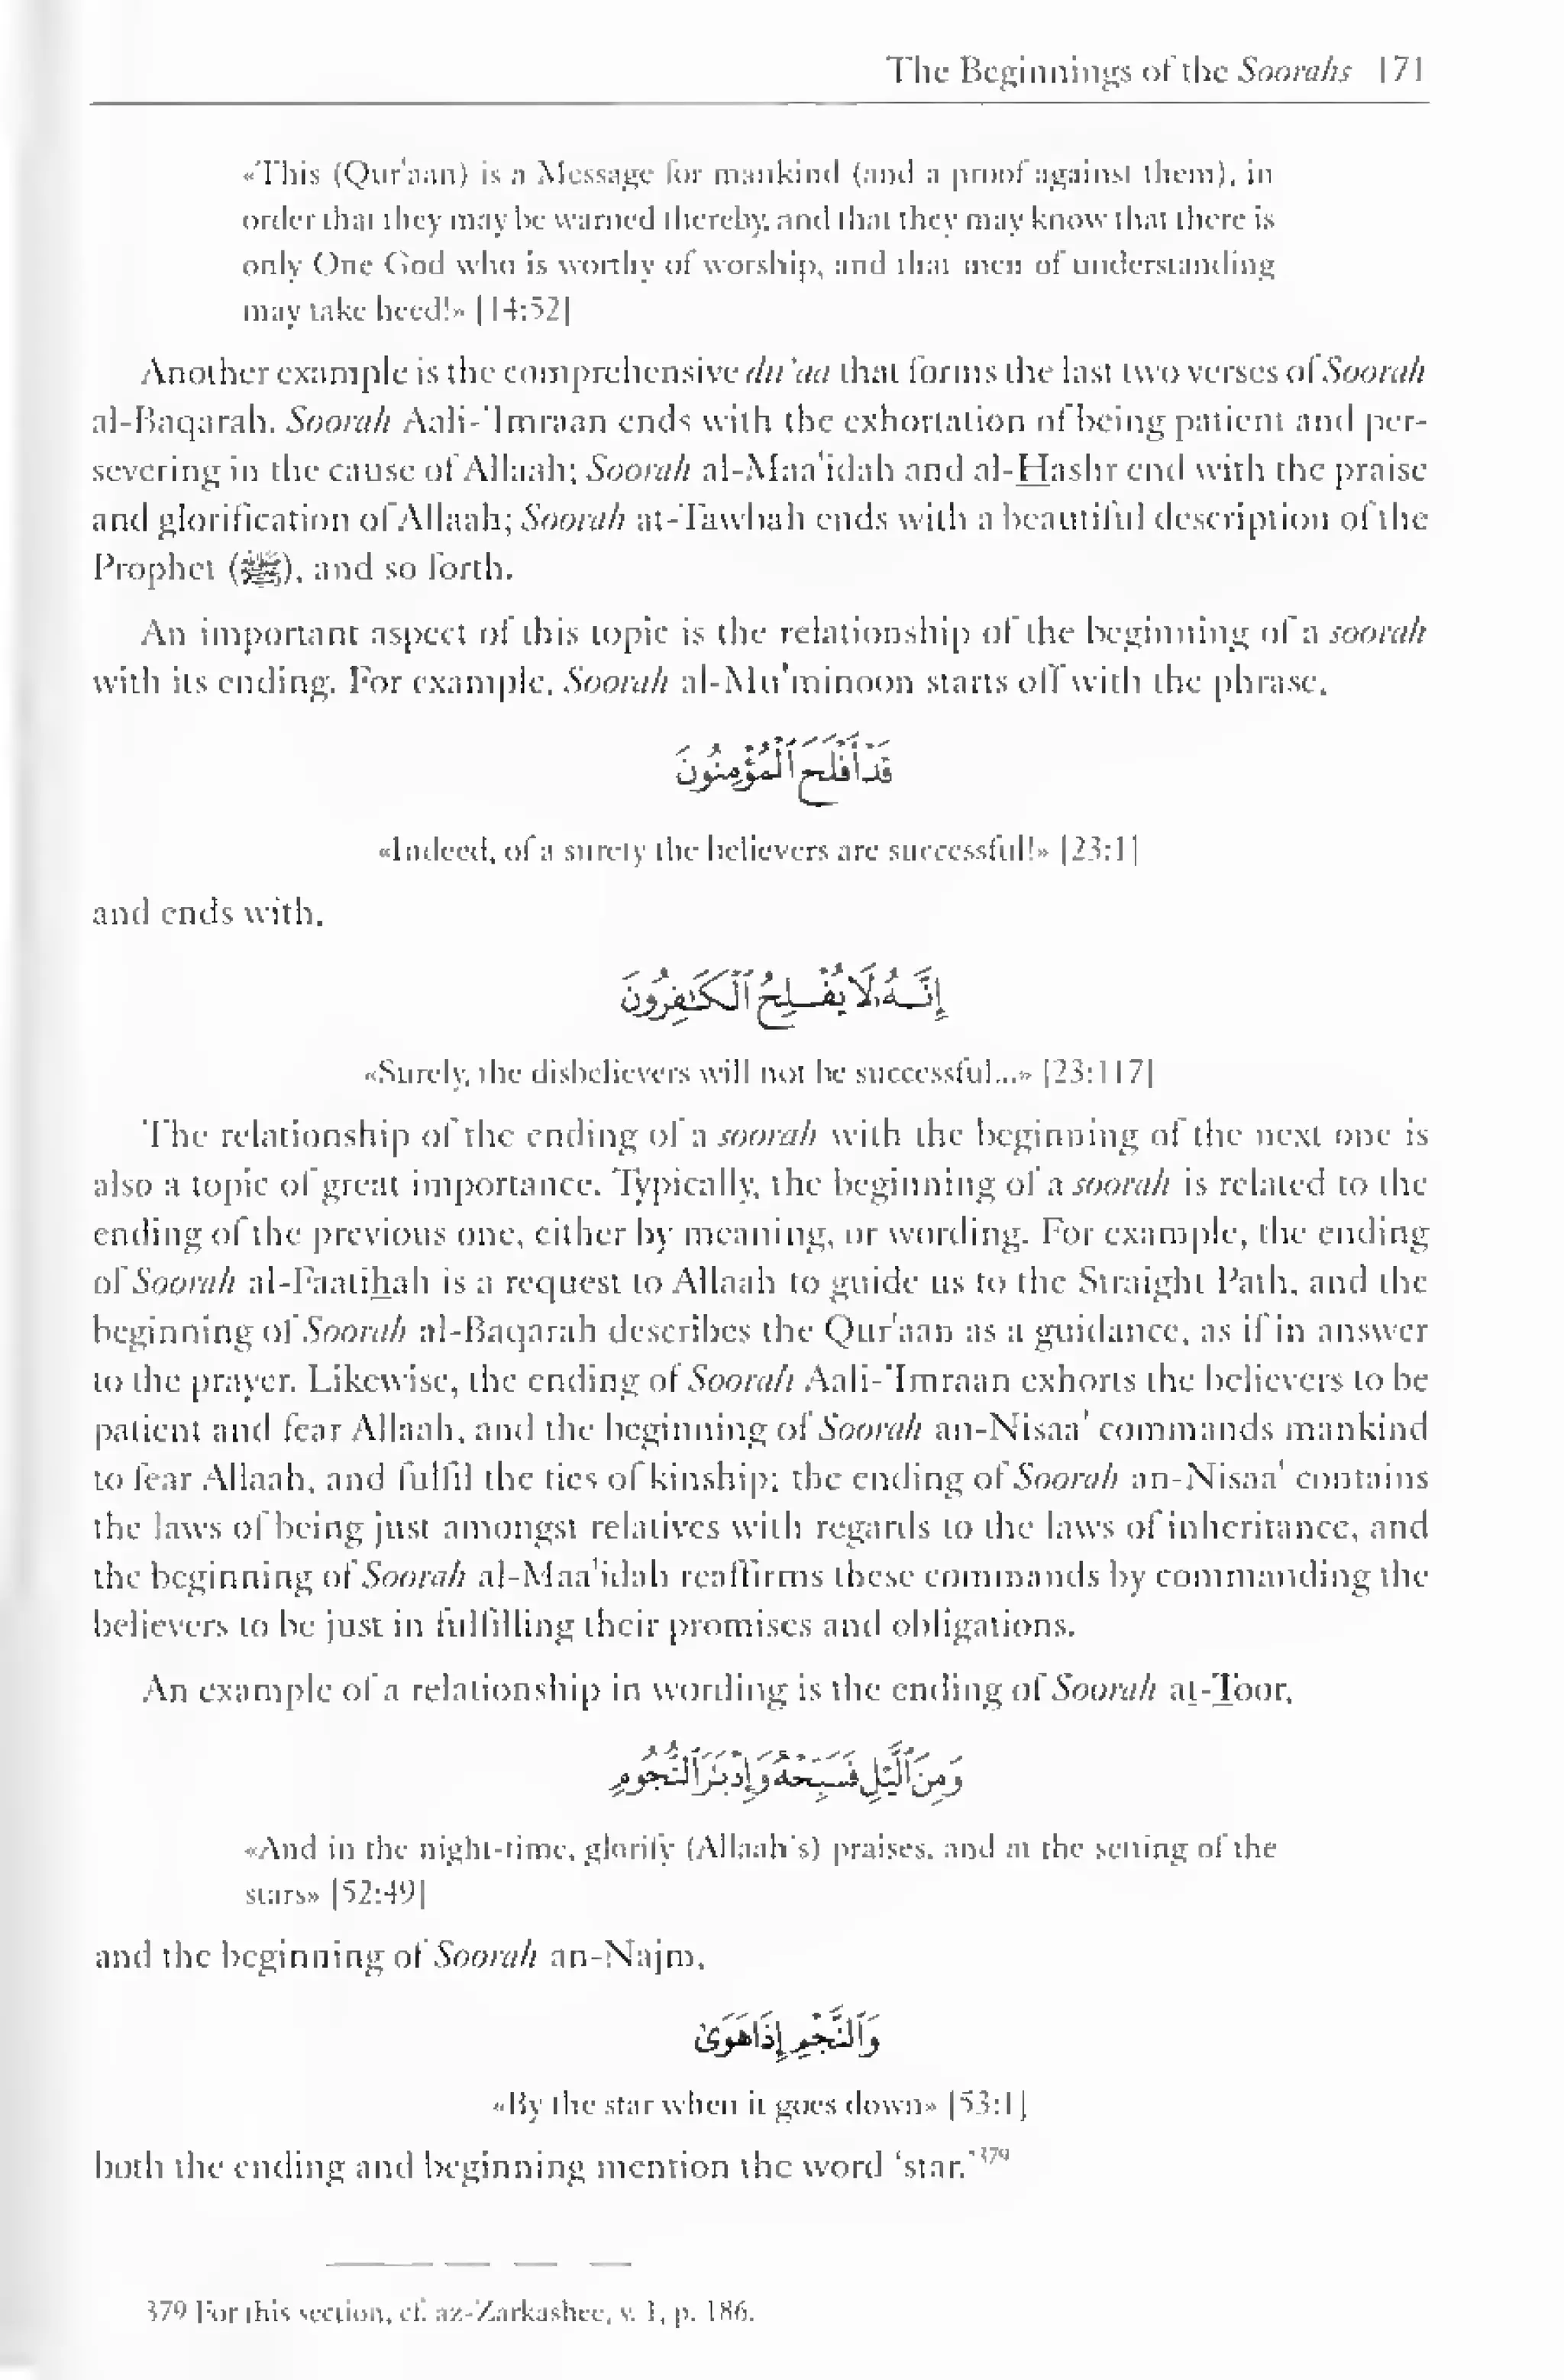 The Beginnings of the Soorahs 171
«This (Qur'aan) is a Message for mankind (and a proof against them), in
order that they may be warned thereby, and that they may know that there is
only One God who is worthy of worship, and that men of understanding
may take heed!» [14:52]
Another example is the comprehensive du'aa that forms the last two verses of Soorah
al-Baqarah. Soorah Aali-'Imraan ends with the exhortation of being patient and per-
severing in the cause of Allaah; Soorah al-Maa'idah and al-Hashr end with the praise
and glorification of Allaah; Soorah at-Tawbah ends with a beautiful description of the
Prophet (ﷺ), and so forth.
An important aspect of this topic is the relationship of the beginning of a soorah
with its ending. For example, Soorah al-Mu'minoon starts off with the phrase,
قَدْ أَفْلَحَ ٱلْمُؤْمِنُونَ
«Indeed, of a surety the believers are successful!» [23:1]
and ends with,
إِنَّهُۥ لَا يُفْلِحُ ٱلْكَٰفِرُونَ
«Surely, the disbelievers will not be successful...» [23:117]
The relationship of the ending of a soorah with the beginning of the next one is
also a topic of great importance. Typically, the beginning of a soorah is related to the
ending of the previous one, either by meaning, or wording. For example, the ending
of Soorah al-Faatihah is a request to Allaah to guide us to the Straight Path, and the
beginning of Soorah al-Baqarah describes the Qur'aan as a guidance, as if in answer
to the prayer. Likewise, the ending of Soorah Aali-'Imraan exhorts the believers to be
patient and fear Allaah, and the beginning of Soorah an-Nisaa' commands mankind
to fear Allaah, and fulfil the ties of kinship; the ending of Soorah an-Nisaa' contains
the laws of being just amongst relatives with regards to the laws of inheritance, and
the beginning of Soorah al-Maa'idah reaffirms these commands by commanding the
believers to be just in fulfilling their promises and obligations.
An example of a relationship in wording is the ending of Soorah at-Toor,
وَمِنَ ٱلَّيْلِ فَسَبِّحْهُ وَإِدْبَٰرَ ٱلنُّجُومِ
«And in the night-time, glorify (Allaah's) praises, and at the setting of the
stars» [52:49]
and the beginning of Soorah an-Najm,
وَٱلنَّجْمِ إِذَا هَوَىٰ
«By the star when it goes down» [53:1]
both the ending and beginning mention the word 'star.'379
379 For this section, cf. az-Zarkashee, v. 1, p. 186.